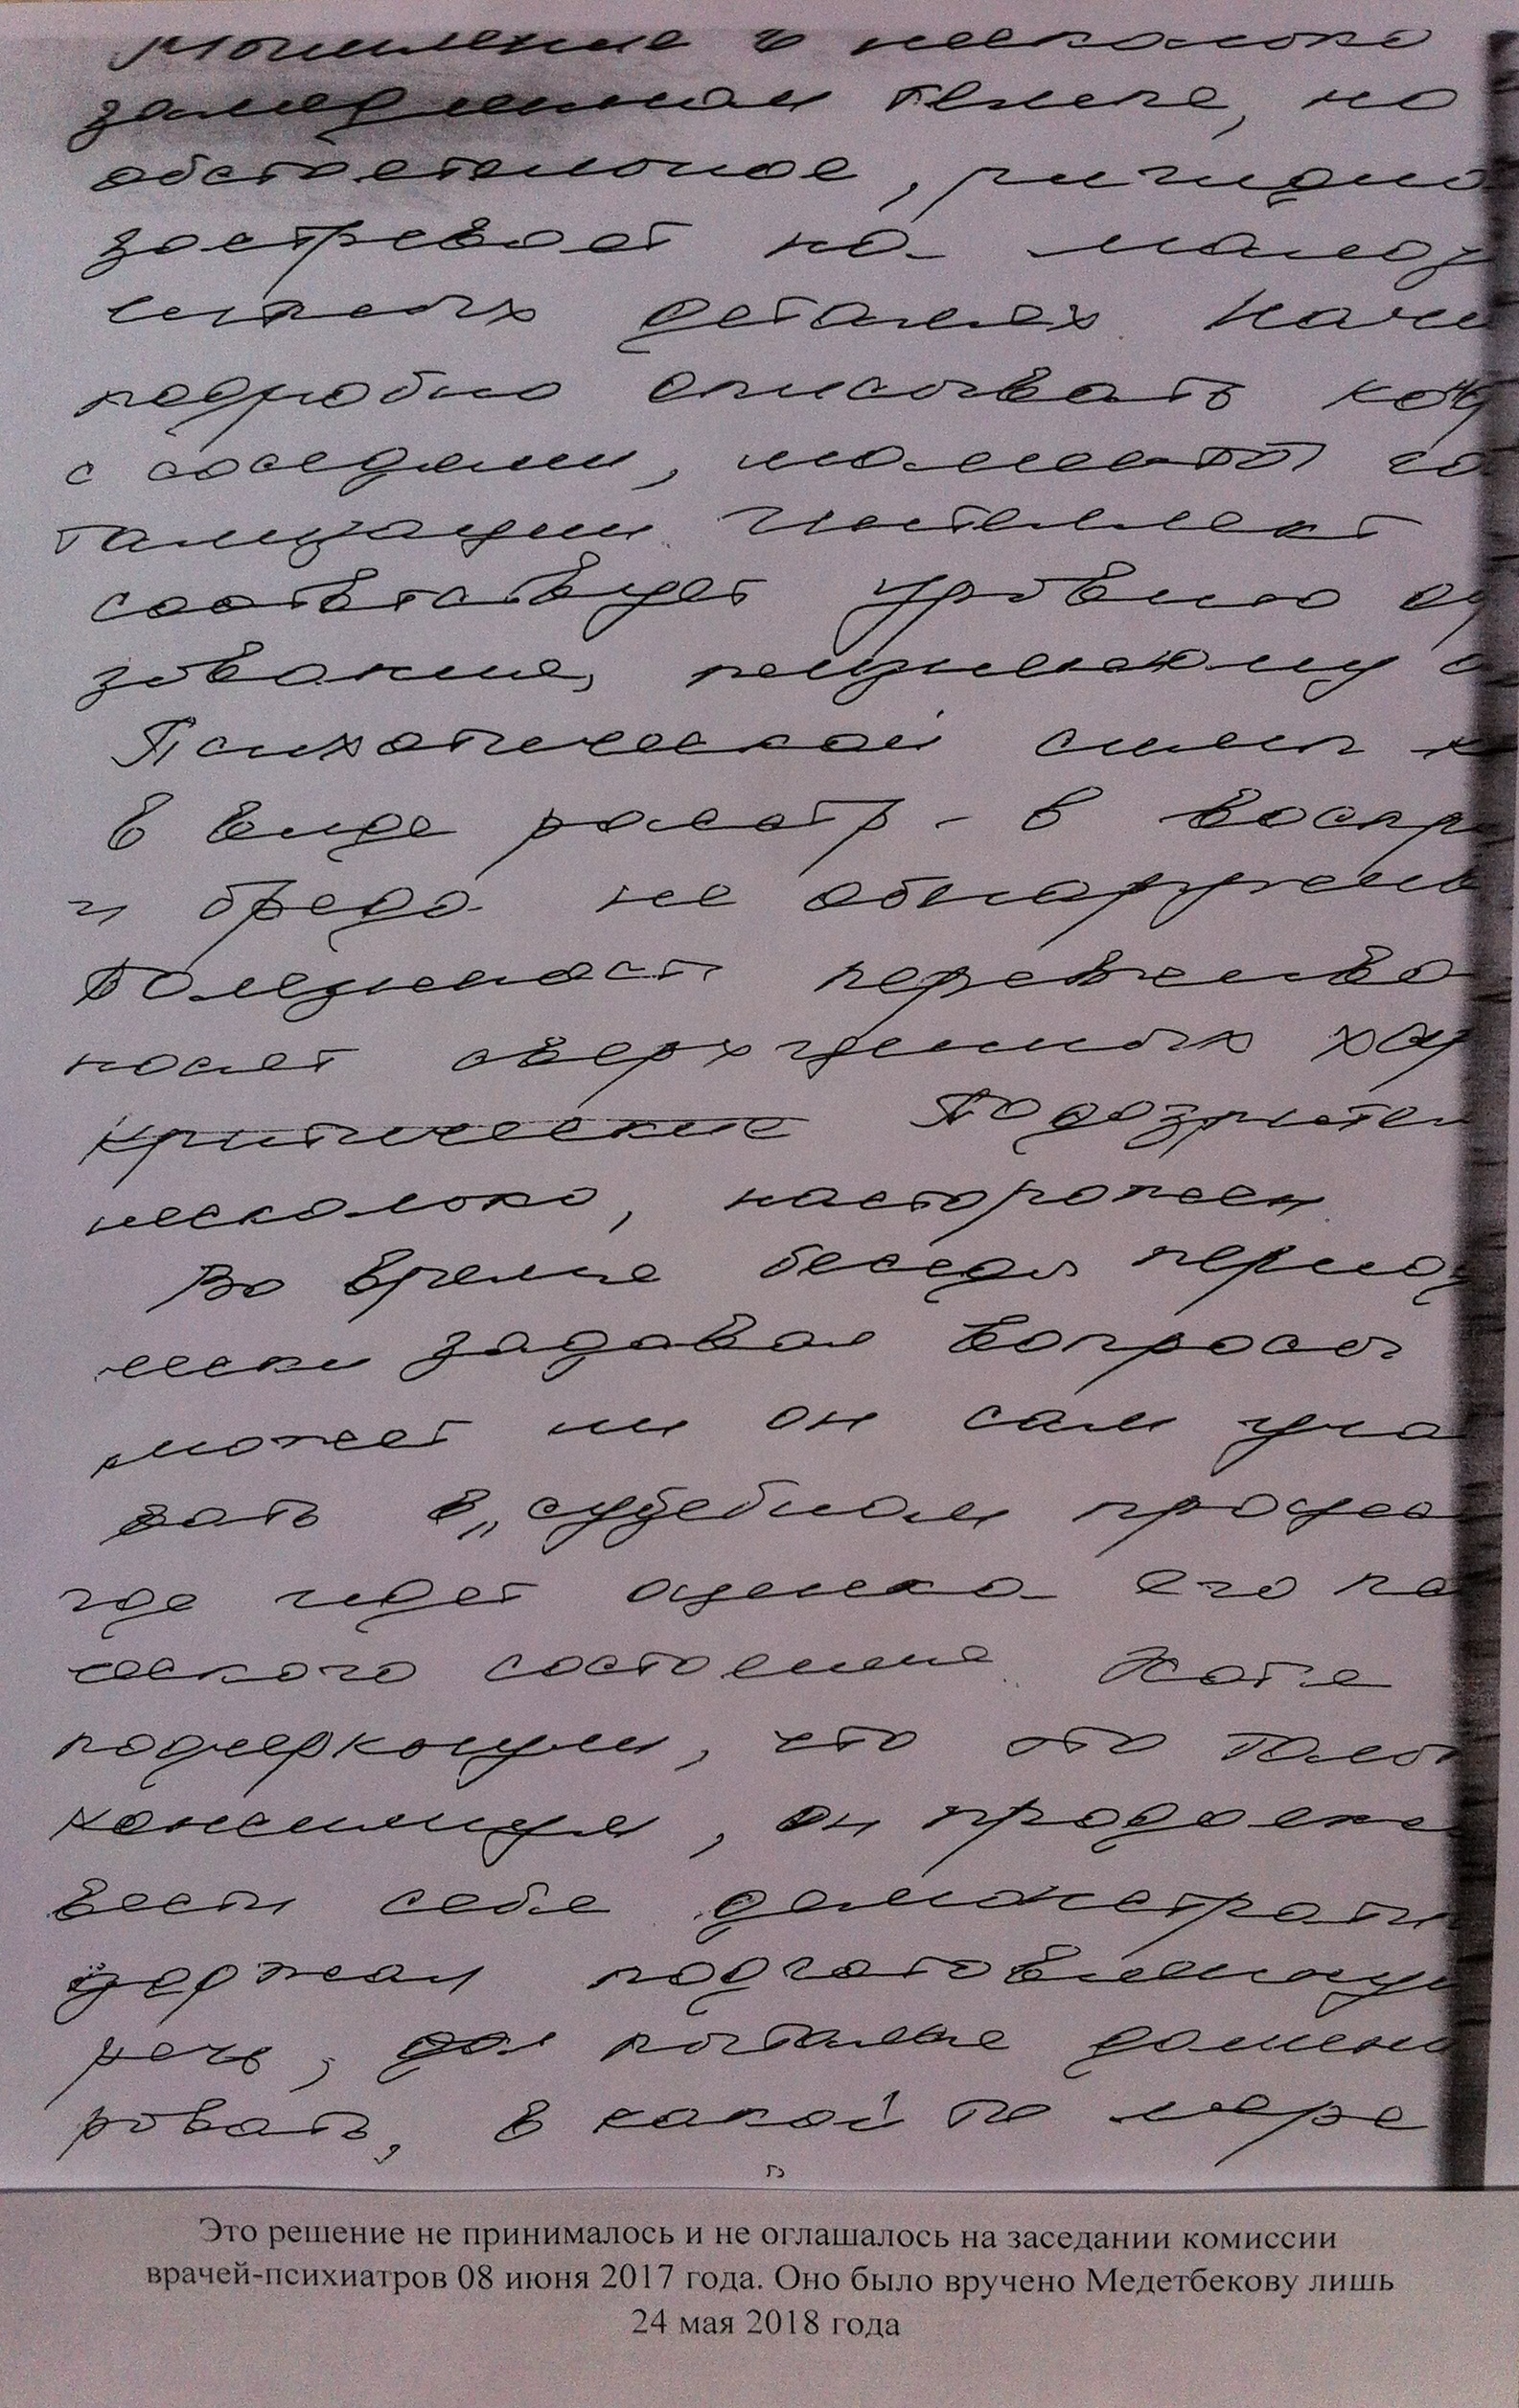 Мышление в несколько
замедленном темпе, но
обстоятельное, ригидно
застревает на малоз
чительных деталях. Начи
подробно описывать кон
с соседями, моменты го
тализации. Интеллект
соответствует уровню об
зования,
Психотической симп
в виде расстр-в воспр
и бреда не обнаружено
Болезнен. пережива
носят сверхценных хар
критические Подозрител
несколько, насторожен.
Во время беседы период
чески задавал вопросы
может ли он сам участ
вать в „судебном процес
где идет оценка его пс
ческого состояния. Хотя
подчеркнули, что это толь
консилиум, он продолжа
вести себя демонстрати
держал подготовленную
речь, попытался домини
ровать, в какой то мере
Это решение не принималось и не оглашалось на заседании комиссии
врачей-психиатров 08 июня 2017 года. Оно было вручено Медетбекову лишь
24 мая 2018 года